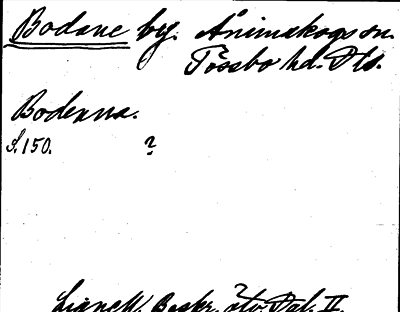 Bodane by. Ånimskogs sn.
Tössbo hd. Dls.
Bodexna.
S. 150. ?
Lignell, Beskr. öfv. Dal. II.